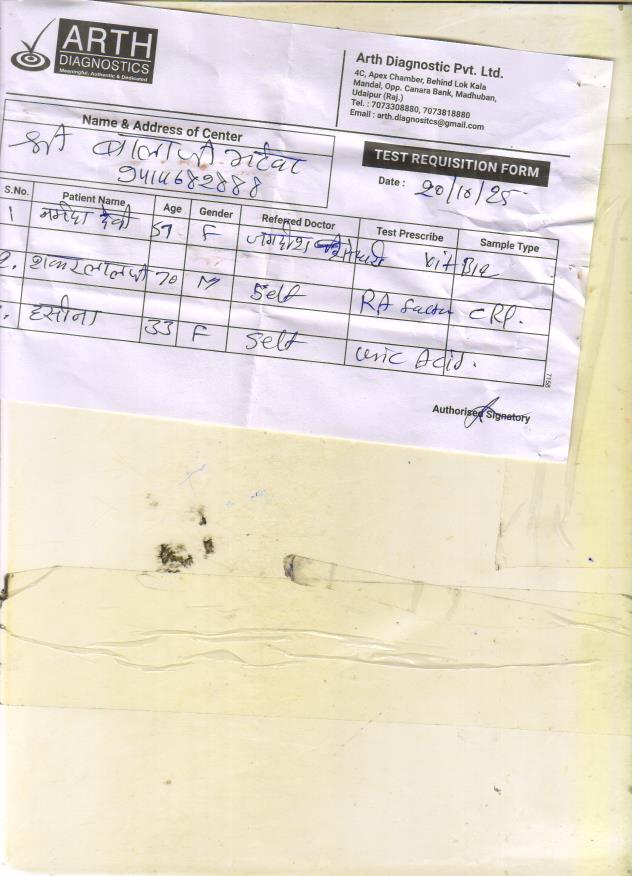 ARTH
DIAGNOSTICS
Meaningful, Authentic & Dedicated
Arth Diagnostic Pvt. Ltd.
4C, Apex Chamber, Behind Lok Kala
Mandal, Opp. Canara Bank, Madhuban,
Udaipur (Raj.)
Tel. : 7073308880, 7073818880
Email : arth.diagnositcs@gmail.com
Name & Address of Center
श्री बालाजी
9414682888
TEST REQUISITION FORM
Date : 20/10/25
S.No. Patient Name Age Gender Referred Doctor Test Prescribe Sample Type
1 देवी F Vit B12
2. 70 M Self RA factor CRP.
हसीना 33 F Self Uric Acid.
7158
Authorised Signatory